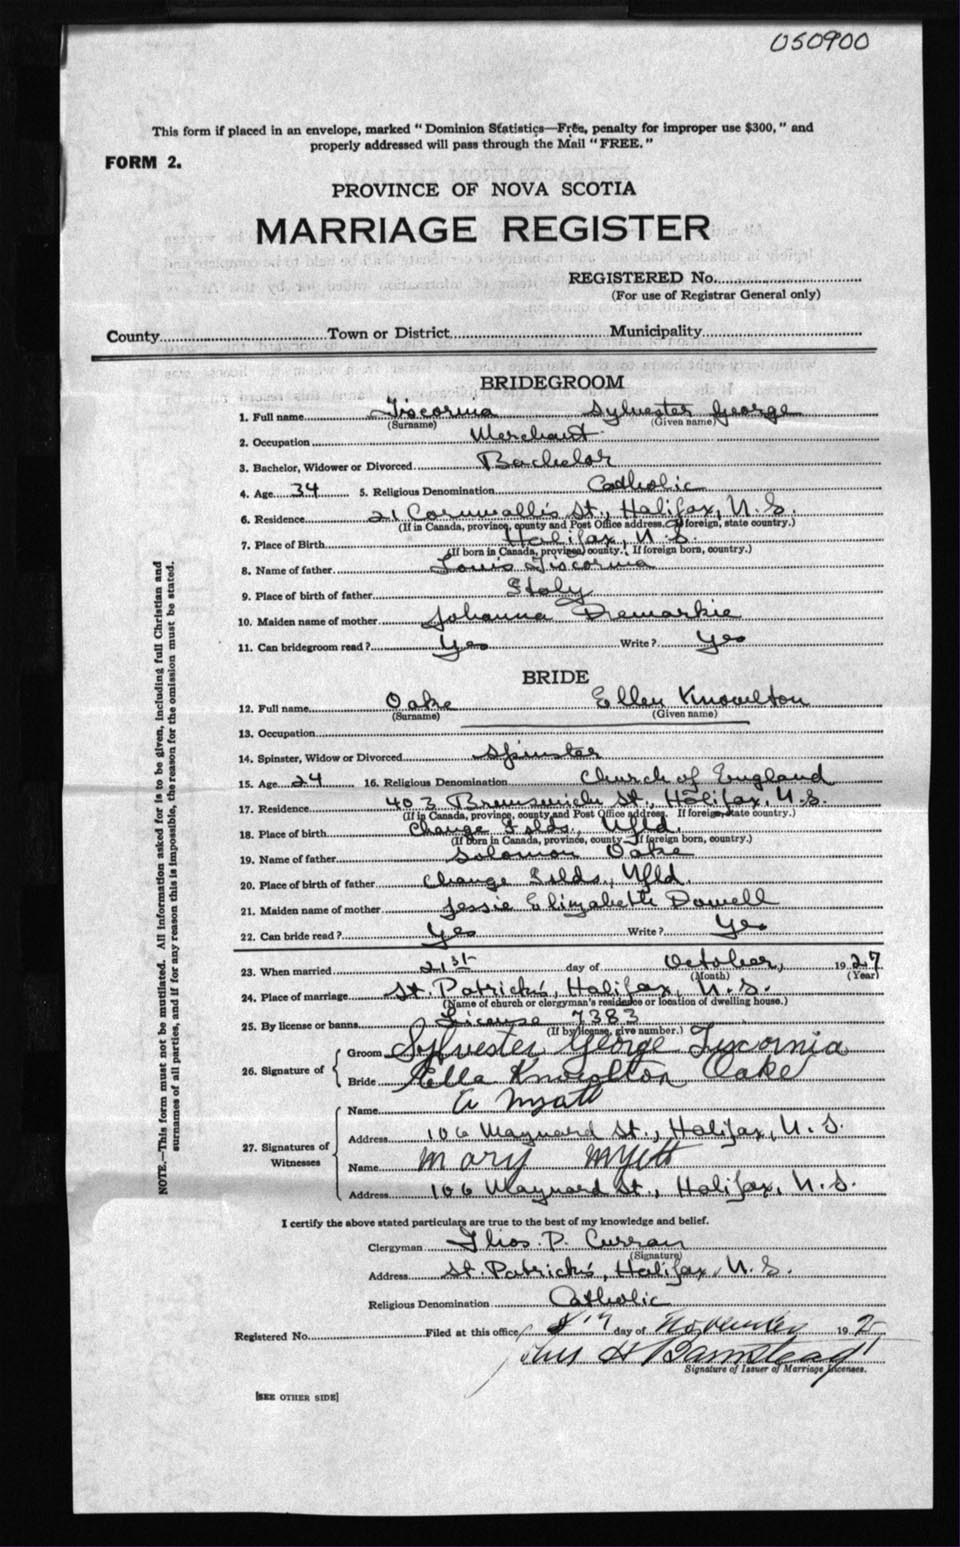 050900
This form if placed in an envelope, marked "Dominion Statistics—Free, penalty for improper use $300," and
properly addressed will pass through the Mail "FREE."
FORM 2.
PROVINCE OF NOVA SCOTIA
MARRIAGE REGISTER
REGISTERED No.
(For use of Registrar General only)
County Town or District Municipality
BRIDEGROOM
1. Full name Tiscornia Sylvester George
(Surname) (Given name)
2. Occupation Merchant
3. Bachelor, Widower or Divorced Bachelor
4. Age 34 5. Religious Denomination Catholic
6. Residence 21 Cornwallis St., Halifax, N.S.
(If in Canada, province, county and Post Office address. If foreign, state country.)
7. Place of Birth Halifax, N.S.
(If born in Canada, province, county. If foreign born, country.)
8. Name of father Louis Tiscornia
9. Place of birth of father Italy
10. Maiden name of mother Johanna
11. Can bridegroom read? Yes Write? Yes
BRIDE
12. Full name Oake Ellen Knowlton
(Surname) (Given name)
13. Occupation
14. Spinster, Widow or Divorced Spinster
15. Age 24 16. Religious Denomination Church of England
17. Residence 403 Brunswick St., Halifax, N.S.
(If in Canada, province, county and Post Office address. If foreign, state country.)
18. Place of birth Change Islds., Nfld.
(If born in Canada, province, county. If foreign born, country.)
19. Name of father Solomon Oake
20. Place of birth of father Change Islds., Nfld.
21. Maiden name of mother Jessie Elizabeth Dowell
22. Can bride read? Yes Write? Yes
23. When married 21st day of October, 1927
(Month) (Year)
24. Place of marriage St. Patrick's, Halifax, N.S.
(Name of church or clergyman's residence or location of dwelling house.)
25. By license or banns License 7383
(If by license, give number.)
26. Signature of Groom Sylvester George Tiscornia
Bride Ella Knowlton Oake
27. Signatures of Witnesses
Name A Myatt
Address 106 Maynard St., Halifax, N.S.
Name Mary Myatt
Address 106 Maynard St., Halifax, N.S.
I certify the above stated particulars are true to the best of my knowledge and belief.
Clergyman P. Curran
(Signature)
Address St. Patrick's, Halifax, N.S.
Religious Denomination Catholic
Registered No. Filed at this office day of November 192
H Barnstead
Signature of Issuer of Marriage Licenses.
[SEE OTHER SIDE]
NOTE.—This form must not be mutilated. All information asked for is to be given, including full Christian and
surnames of all parties, and if for any reason this is impossible, the reason for the omission must be stated.